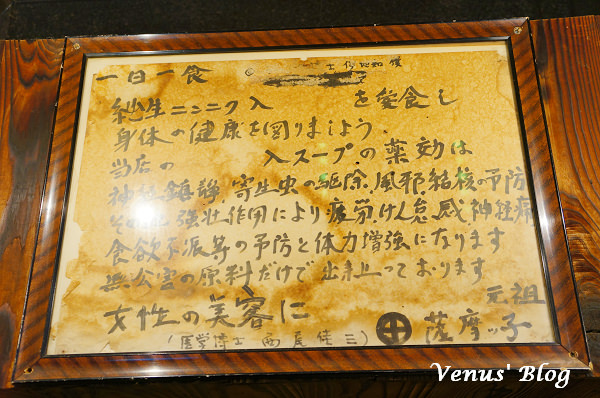 一日一食
純生ニンニク入 を愛食し
身体の健康を図りましよう、
当店の 入スープの薬効は
神経鎮静、寄生虫の駆除、風邪、結核の予防
その他強壮作用により疲労、けん怠感、神経痛
食欲不振等の予防と体力増強になります
無公害の原料だけで出来上っております
元祖
女性の美容に
薩摩ッ子
(医学博士 西尾 三)
Venus' Blog